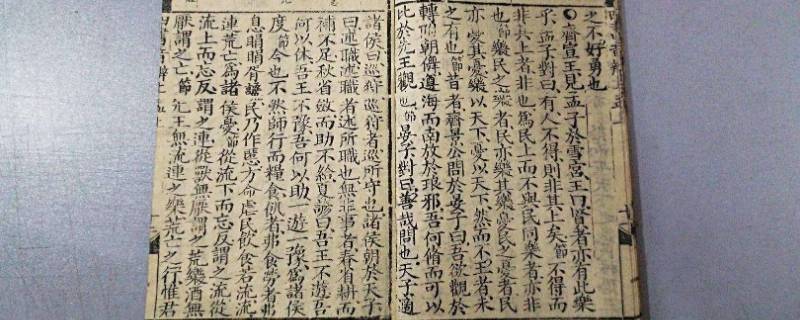 之不好勇也
○齊宣王見孟子於雪宮王曰賢者亦有此樂
乎孟子對曰有人不得則非其上矣節不得而
非其上者非也爲民上而不與民同樂者亦非
也節樂民之樂者民亦樂其樂憂民之憂者民
亦憂其憂樂以天下憂以天下然而不王者未
之有也節昔者齊景公問於晏子曰吾欲觀於
轉附朝儛遵海而南放於琅邪吾何脩而可以
比於先王觀也節晏子對曰善哉問也天子適
諸侯曰巡狩巡狩者巡所守也諸侯朝於天子
曰述職述職者述所職也無非事者春省耕而
補不足秋省斂而助不給夏諺曰吾王不遊吾
何以休吾王不豫吾何以助一遊一豫爲諸侯
度節今也不然師行而糧食飢者弗食勞者弗
息睊睊胥讒民乃作慝方命虐民飲食若流流
連荒亡爲諸侯憂節從流下而忘反謂之流從
流上而忘反謂之連從獸無厭謂之荒樂酒無
厭謂之亡節先王無流連之樂荒亡之行惟君